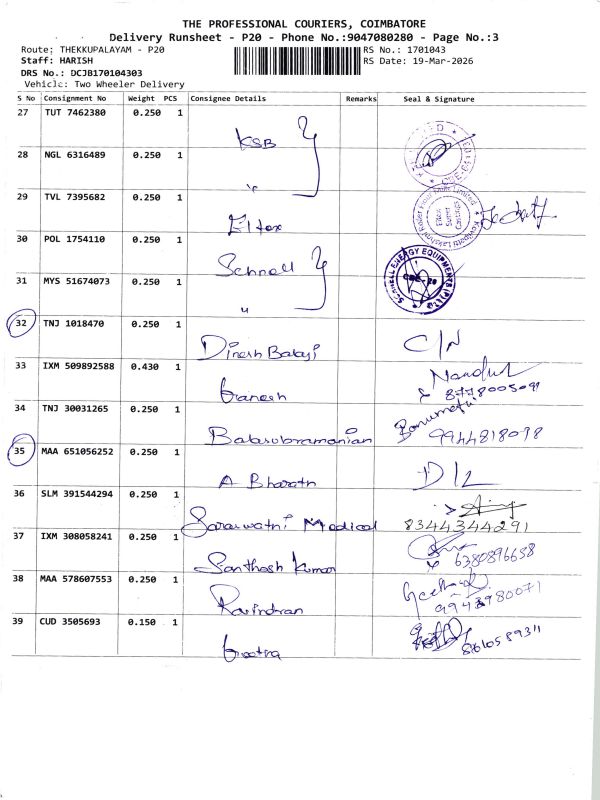 THE PROFESSIONAL COURIERS, COIMBATORE
Delivery Runsheet - P20 - Phone No.:9047080280 - Page No.:3
Route: THEKKUPALAYAM - P20 RS No.: 1701043
Staff: HARISH RS Date: 19-Mar-2026
DRS No.: DCJB170104303
Vehicle: Two Wheeler Delivery
S No Consignment No Weight PCS Consignee Details Remarks Seal & Signature
27 TUT 7462380 0.250 1 KSB
28 NGL 6316489 0.250 1 "
29 TVL 7395682 0.250 1 Eltex
30 POL 1754110 0.250 1 Schnell SCHNELL ENERGY EQUIPMENTS (P) LTD
31 MYS 51674073 0.250 1 "
32 TNJ 1018470 0.250 1 Dinesh Babaji C/N
33 IXM 509892588 0.430 1 Ganesh
34 TNJ 30031265 0.250 1 Balasubramanian 9944818078
35 MAA 651056252 0.250 1 A Bharath D/L
36 SLM 391544294 0.250 1 Saraswathi Medical 8344344291
37 IXM 308058241 0.250 1 Santhosh Kumar 6380896658
38 MAA 578607553 0.250 1 Ravindran
39 CUD 3505693 0.150 1 Geetha